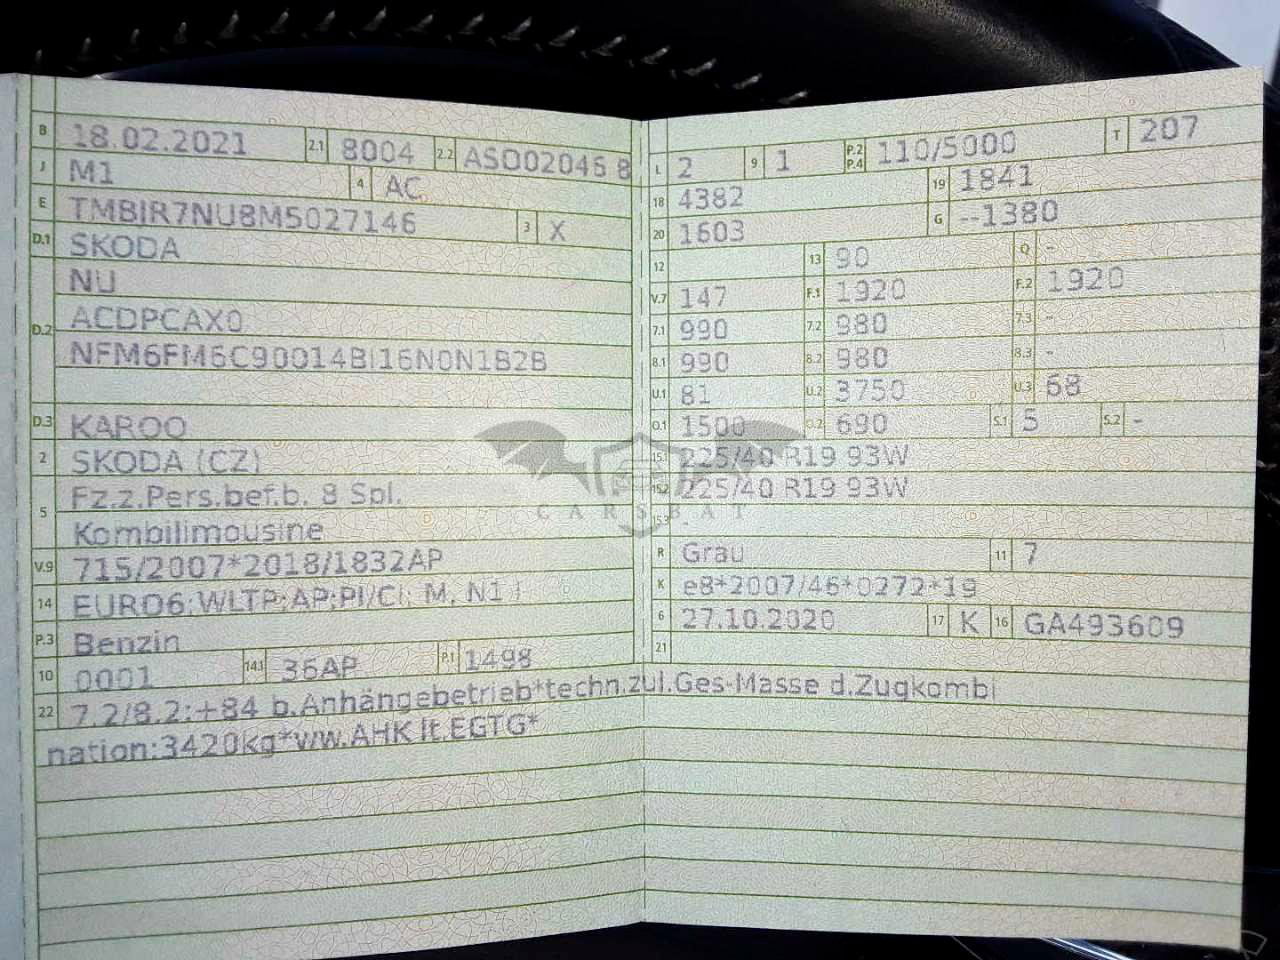 B 18.02.2021 2.1 8004 2.2 ASO02046 8
J M1 4 AC
E TMBIR7NU8M5027146 3 X
D.1 SKODA
NU
D.2 ACDPCAX0
NFM6FM6C90014BI16N0N1B2B
D.3 KAROQ
2 SKODA (CZ)
5 Fz.z.Pers.bef.b. 8 Spl.
Kombilimousine
V.9 715/2007*2018/1832AP
14 EURO6;WLTP;AP;PI/CI; M, N1 I
P.3 Benzin
10 0001 14.1 36AP P.1 1498
L 2 9 1 P.2 P.4 110/5000 T 207
18 4382 19 1841
20 1603 G --1380
12 13 90 Q -
V.7 147 F.1 1920 F.2 1920
7.1 990 7.2 980 7.3 -
8.1 990 8.2 980 8.3 -
U.1 81 U.2 3750 U.3 68
O.1 1500 O.2 690 S.1 5 S.2 -
15.1 225/40 R19 93W
15.2 225/40 R19 93W
15.3 -
CARSBAT
R Grau 11 7
K e8*2007/46*0272*19
6 27.10.2020 17 K 16 GA493609
21
22 7.2/8.2:+84 b.Anhängebetrieb*techn.zul.Ges-Masse d.Zugkombi
nation:3420kg*ww.AHK lt.EGTG*